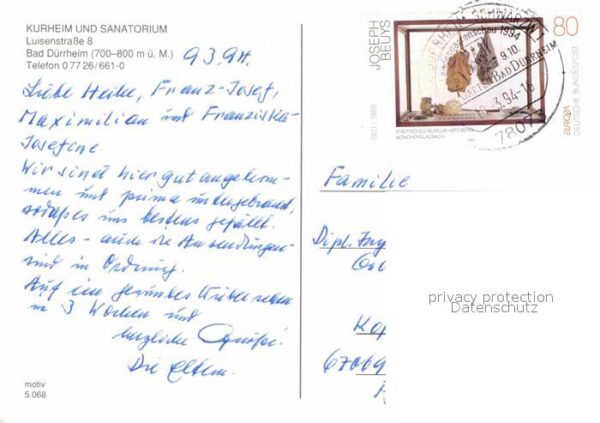 KURHEIM UND SANATORIUM
Luisenstraße 8
Bad Dürrheim (700–800 m ü. M.)
Telefon 0 77 26/661-0
9.3.94.
Liebe Heike, Franz-Josef,
Maximilian und Franziska-
Josefine.
Wir sind hier gut angekom-
men und prima untergebracht,
sodaßes uns bestens gefällt.
Alles - auch die Anwendungen
sind in Ordnung.
Auf ein gesundes Wiedersehen
in 3 Wochen und
herzliche Grüße!
Die Eltern.
motiv
5.068
JOSEPH
BEUYS
1921 - 1986
80
STÄDTISCHES MUSEUM ABTEIBERG
MÖNCHENGLADBACH
EUROPA
DEUTSCHE BUNDESPOST
SCHWARZW
1994
BAD DÜRRHEIM
.3.94-10
7807
Familie
Dipl. Ing
privacy protection
Datenschutz
67069